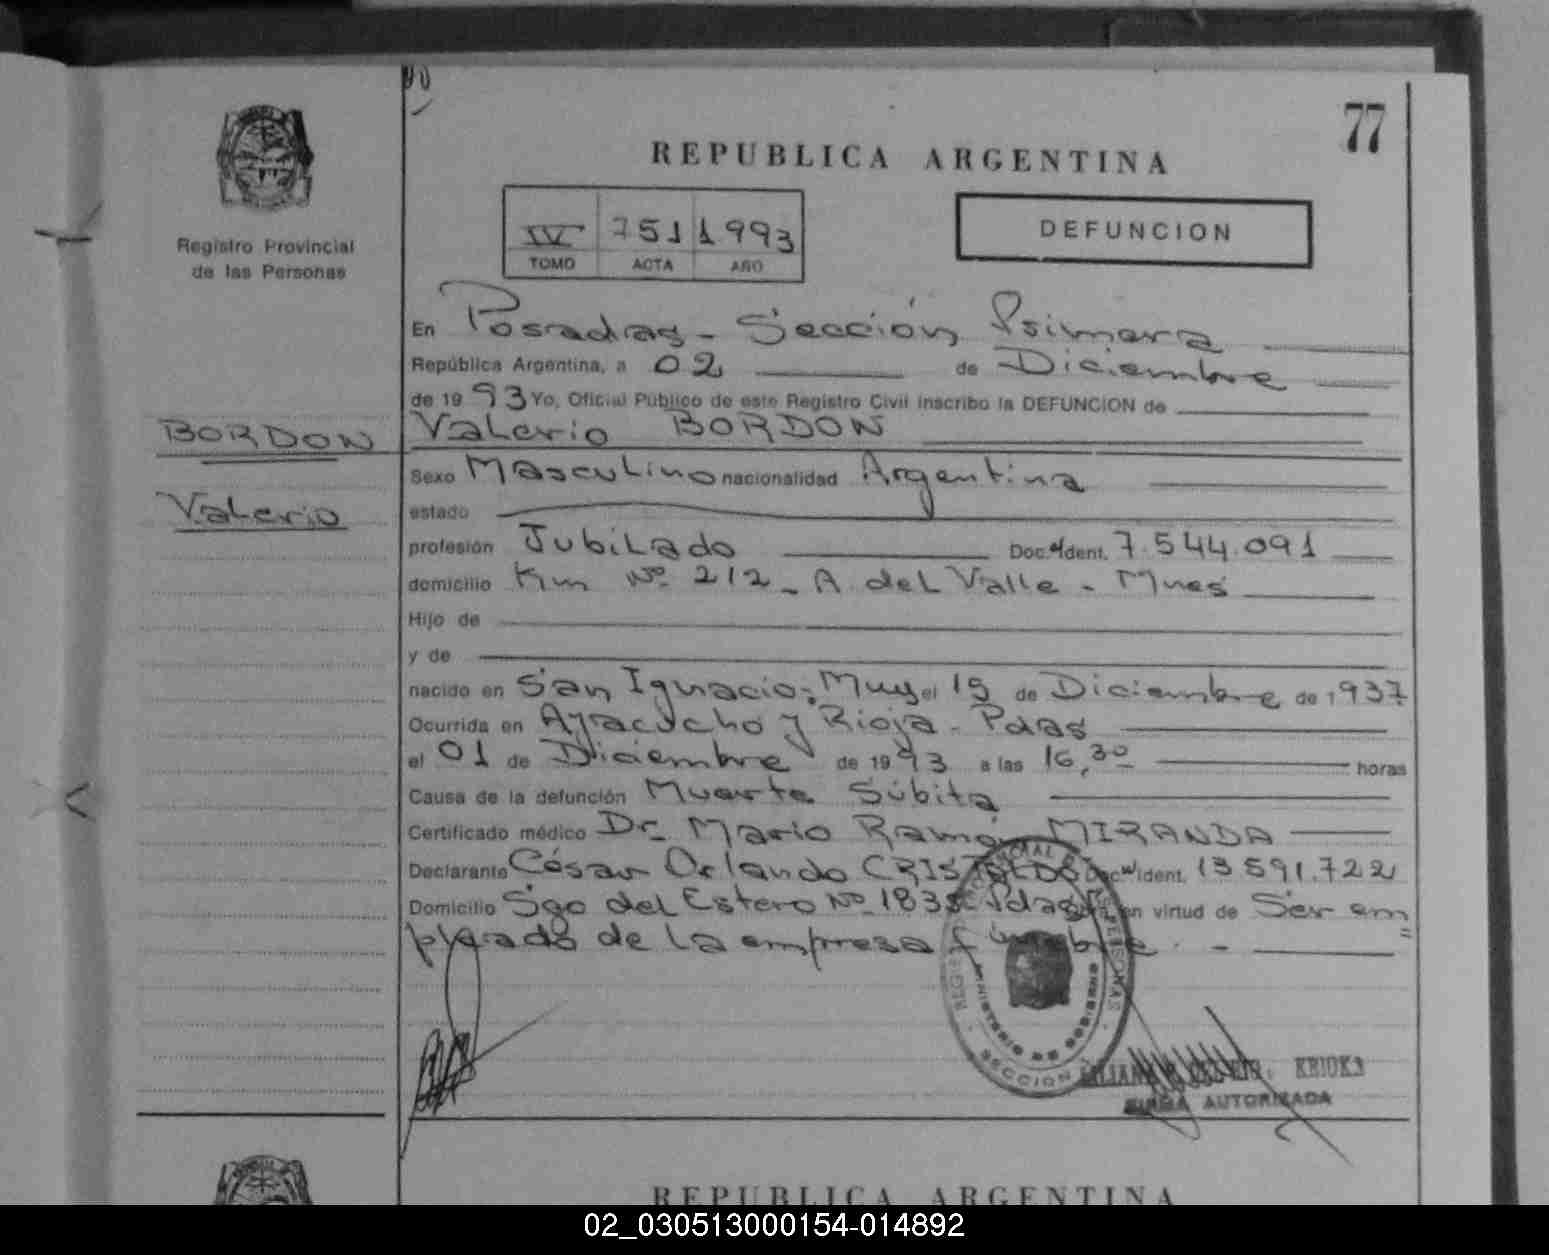 77
REPUBLICA ARGENTINA
IV 751 1993
TOMO ACTA AÑO
DEFUNCION
Registro Provincial
de las Personas
BORDON
Valerio
En Posadas - Sección Primera
República Argentina, a 02 de Diciembre
de 1993 Yo, Oficial Público de este Registro Civil inscribo la DEFUNCION de
Valerio BORDON
Sexo Masculino nacionalidad Argentina
estado
profesión Jubilado Doc. Ident. 7.544.091
domicilio Km Nº 212 - A. del Valle - Mnes
Hijo de
y de
nacido en San Ignacio; el 15 de Diciembre de 1937
Ocurrida en Ayacucho y Rioja - Pdas
el 01 de Diciembre de 1993 a las 16,30 horas
Causa de la defunción Muerte Súbita
Certificado médico Dr. Mario Ramón MIRANDA
Declarante César Orlando CRISTALDO Doc. Ident. 13.591.722
Domicilio Sgo del Estero Nº 1838 Pdas en virtud de Ser em
pleado de la empresa fúnebre. -
REGISTRO PROVINCIAL DE LAS PERSONAS
MINISTERIO DE GOBIERNO
SECCION
FIRMA AUTORIZADA
REPUBLICA ARGENTINA
02_030513000154-014892